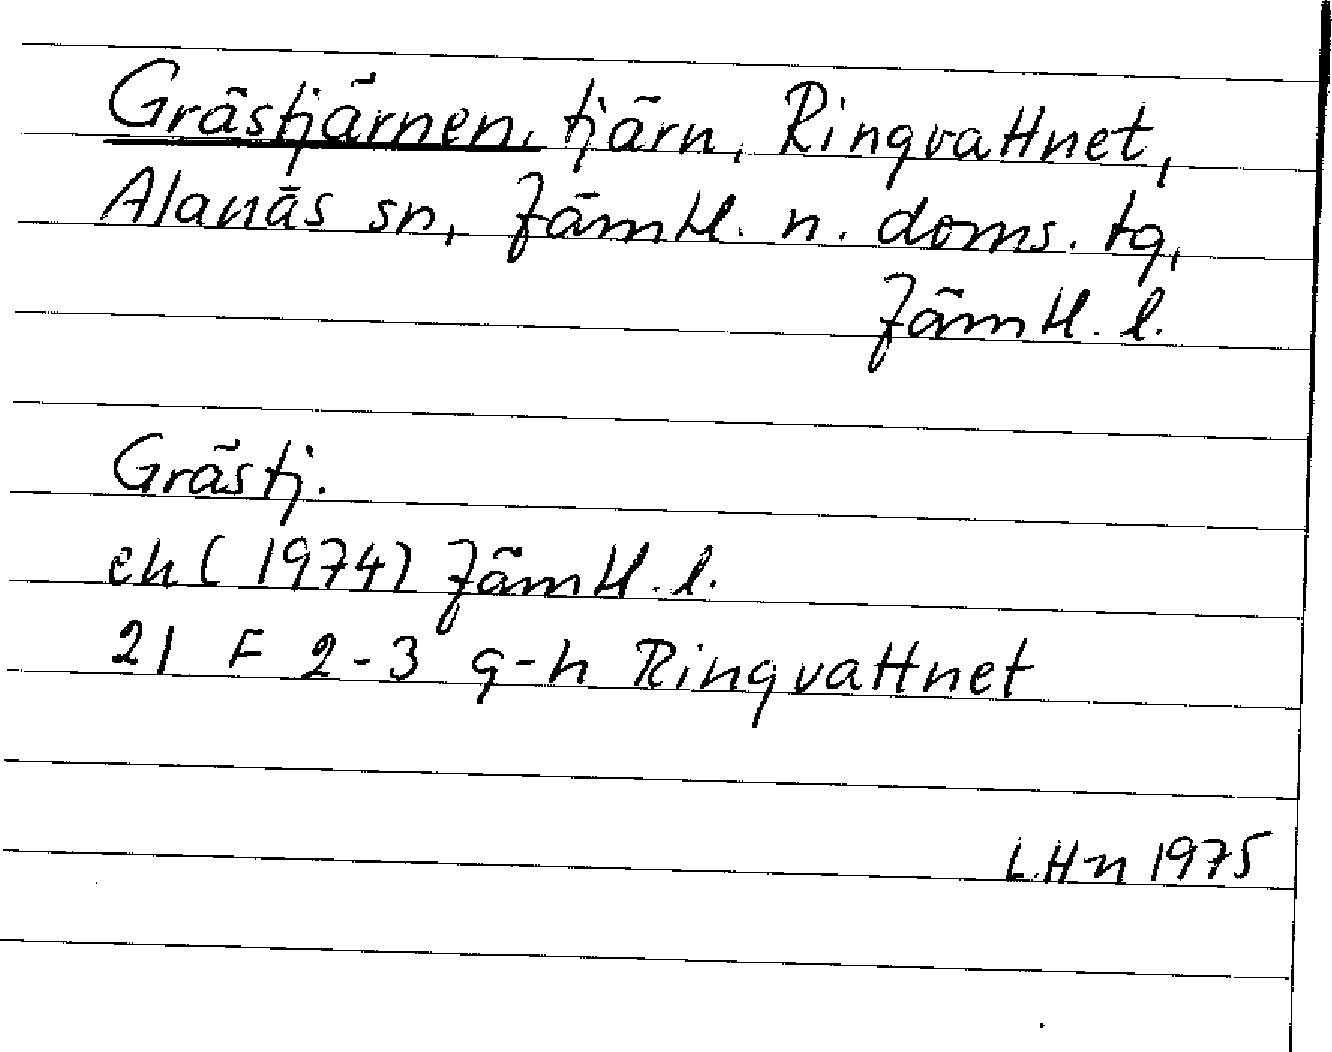 Grästjärnen, tjärn, Ringvattnet,
Alanäs sn, Jämtl. n. doms. tg,
Jämtl. l.
Grästj.
ek (1974) Jämtl. l.
21 F 2-3 g-h Ringvattnet
L.Hn 1975